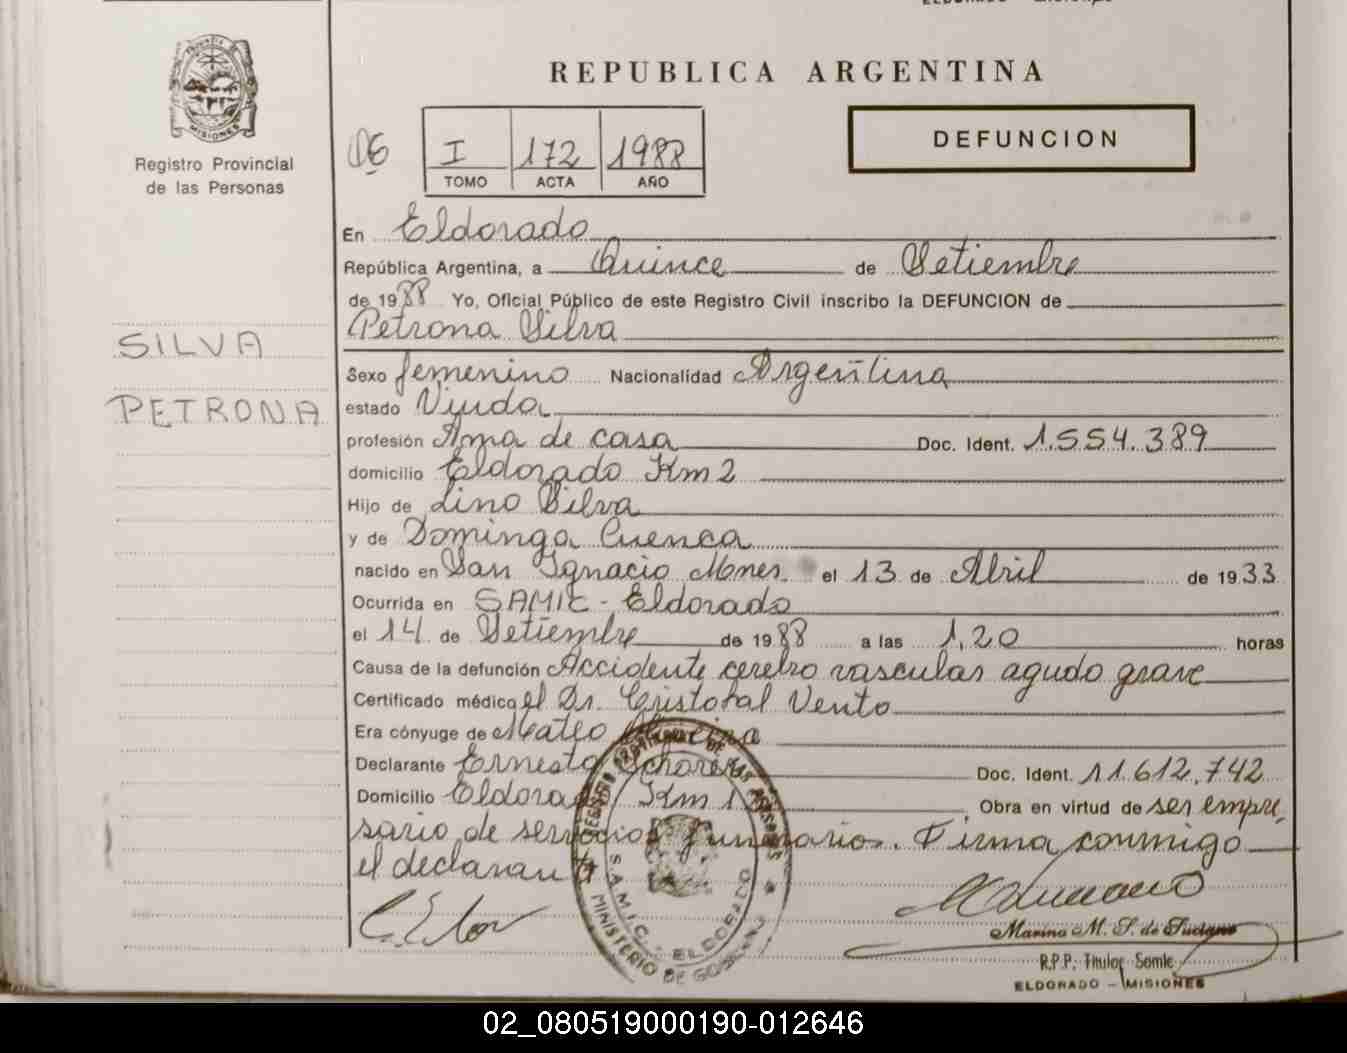 REPUBLICA ARGENTINA
MISIONES
Registro Provincial
de las Personas
06
I 172 1988
TOMO ACTA AÑO
DEFUNCION
En Eldorado
República Argentina, a Quince de Setiembre
de 1988 Yo, Oficial Público de este Registro Civil inscribo la DEFUNCION de
Petrona Silva
SILVA
PETRONA
Sexo femenino Nacionalidad Argentina
estado Viuda
profesión Ama de casa Doc. Ident. 1.554.389
domicilio Eldorado Km 2
Hijo de Lino Silva
y de Dominga Cuenca
nacido en San Ignacio Mnes. el 13 de Abril de 1933
Ocurrida en SAMIC - Eldorado
el 14 de Setiembre de 1988 a las 1,20 horas
Causa de la defunción Accidente cerebro vascular agudo grave
Certificado médico el Dr. Cristobal Vento
Era cónyuge de Mateo
Declarante Ernesto Doc. Ident. 11.612.742
Domicilio Eldorado Km , Obra en virtud de ser empre,
sario de servicios funerarios. Firma conmigo
el declarante
S.A.M.I.C. - ELDORADO
MINISTERIO DE GOBIERNO
Marina M. S. de Luciano
R.P.P. Titular Samic
ELDORADO - MISIONES
02_080519000190-012646